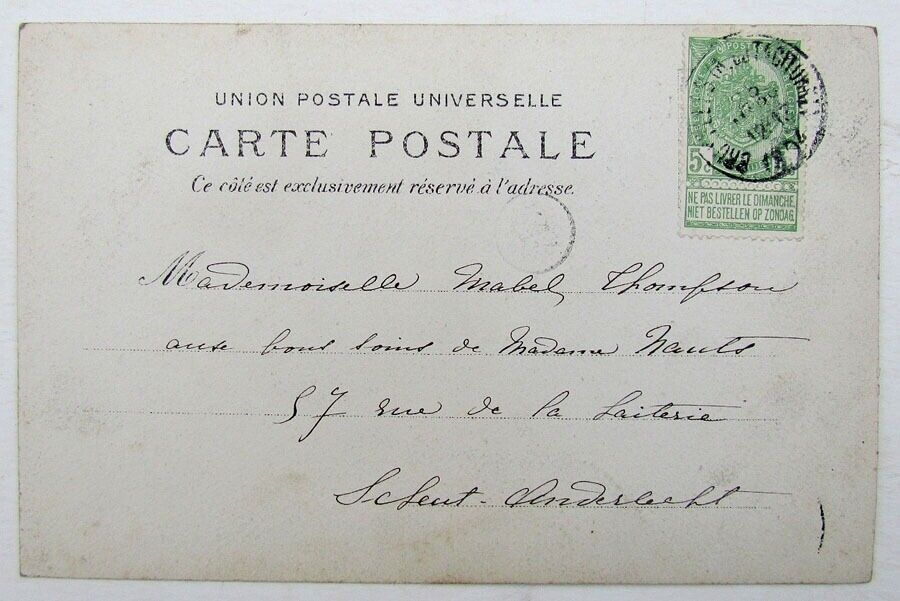 UNION POSTALE UNIVERSELLE
CARTE POSTALE
Ce côté est exclusivement réservé à l'adresse.
POST
5
NE PAS LIVRER LE DIMANCHE
NIET BESTELLEN OP ZONDAG
TACITURNE
Mademoiselle Mabel Thompson
aux bons soins de Madame Nauts
57 rue de la Laiterie
Scheut-Anderlecht